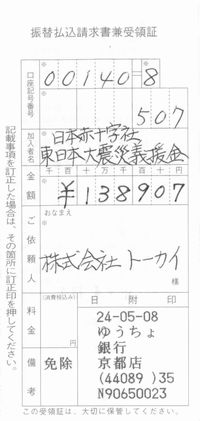 振替払込請求書兼受領証
口座記号番号
00140=8
507
加入者名
日本赤十字社
東日本大震災義援金
金額
千 百 十 万 千 百 十 円
¥138907
ご依頼人
おなまえ
株式会社 トーカイ
様
料金
(消費税込み)
円
日附印
24-05-08
ゆうちょ
銀行
京都店
(44089 )35
N90650023
備考
免除
記載事項を訂正した場合は、その箇所に訂正印を押してください。
この受領証は、大切に保管してください。